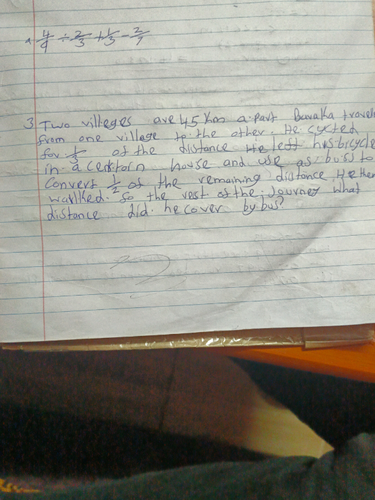 4/9 ÷ 2/3 + 1/3 - 2/9
3 Two villeges are 45 Km a part Baraka travel
from one village to the other. He cycled
for 1/3 of the distance He left his bicycle
in a certain house and use as bus to
Convert 1/2 of the remaining distance. He then
walked. for the rest of the Journey what
distance did he cover by bus?